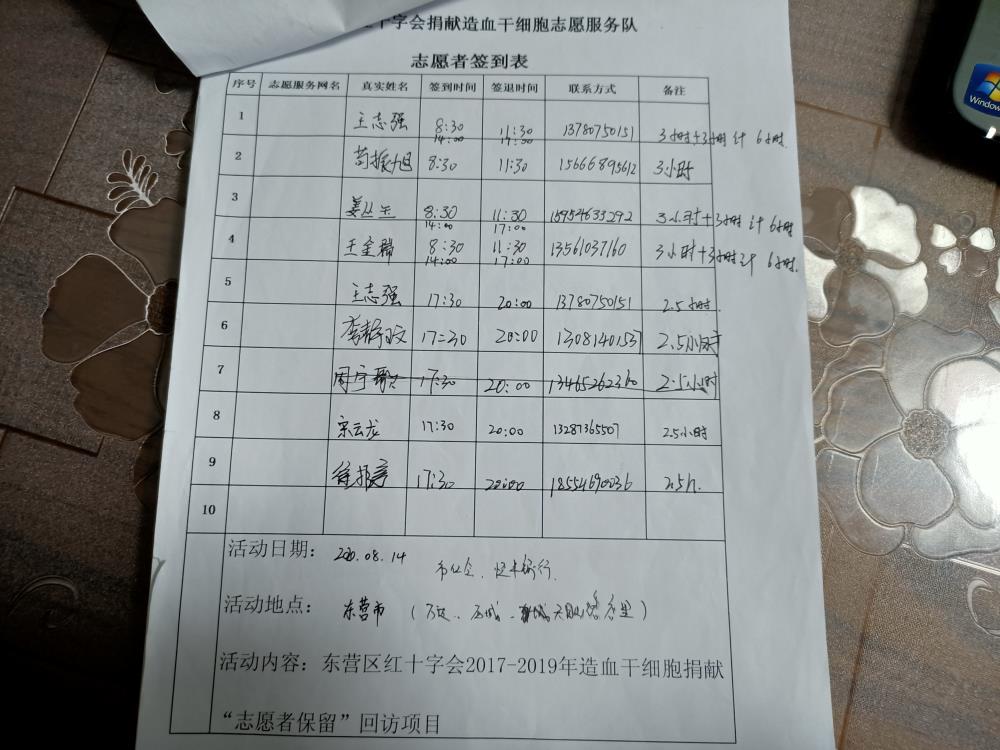 十字会捐献造血干细胞志愿服务队
志愿者签到表
序号 志愿服务网名 真实姓名 签到时间 签退时间 联系方式 备注
1 王志强 8:30 11:30 13780750151 3小时+3小时 计 6小时.
14:00 17:00
2 苟振旭 8:30 11:30 15666895612 3小时
3 姜丛玉 8:30 11:30 15954633292 3小时+3小时 计 6小时
14:00 17:00
4 8:30 11:30 13561037160 3小时+3小时计 6小时.
14:00 17:00
5 王志强 17:30 20:00 13780750151 2.5小时.
6 李静 17:30 20:00 13081401537 2.5小时
7 周宇 17:30 20:00 13465262360 2.5小时
8 宋云龙 17:30 20:00 13287365507 2.5小时
9 17:30 20:00 18554690036 2.5h.
10
活动日期: 2020.08.14
活动地点: 东营市
活动内容:东营区红十字会2017-2019年造血干细胞捐献
“志愿者保留”回访项目
Windows